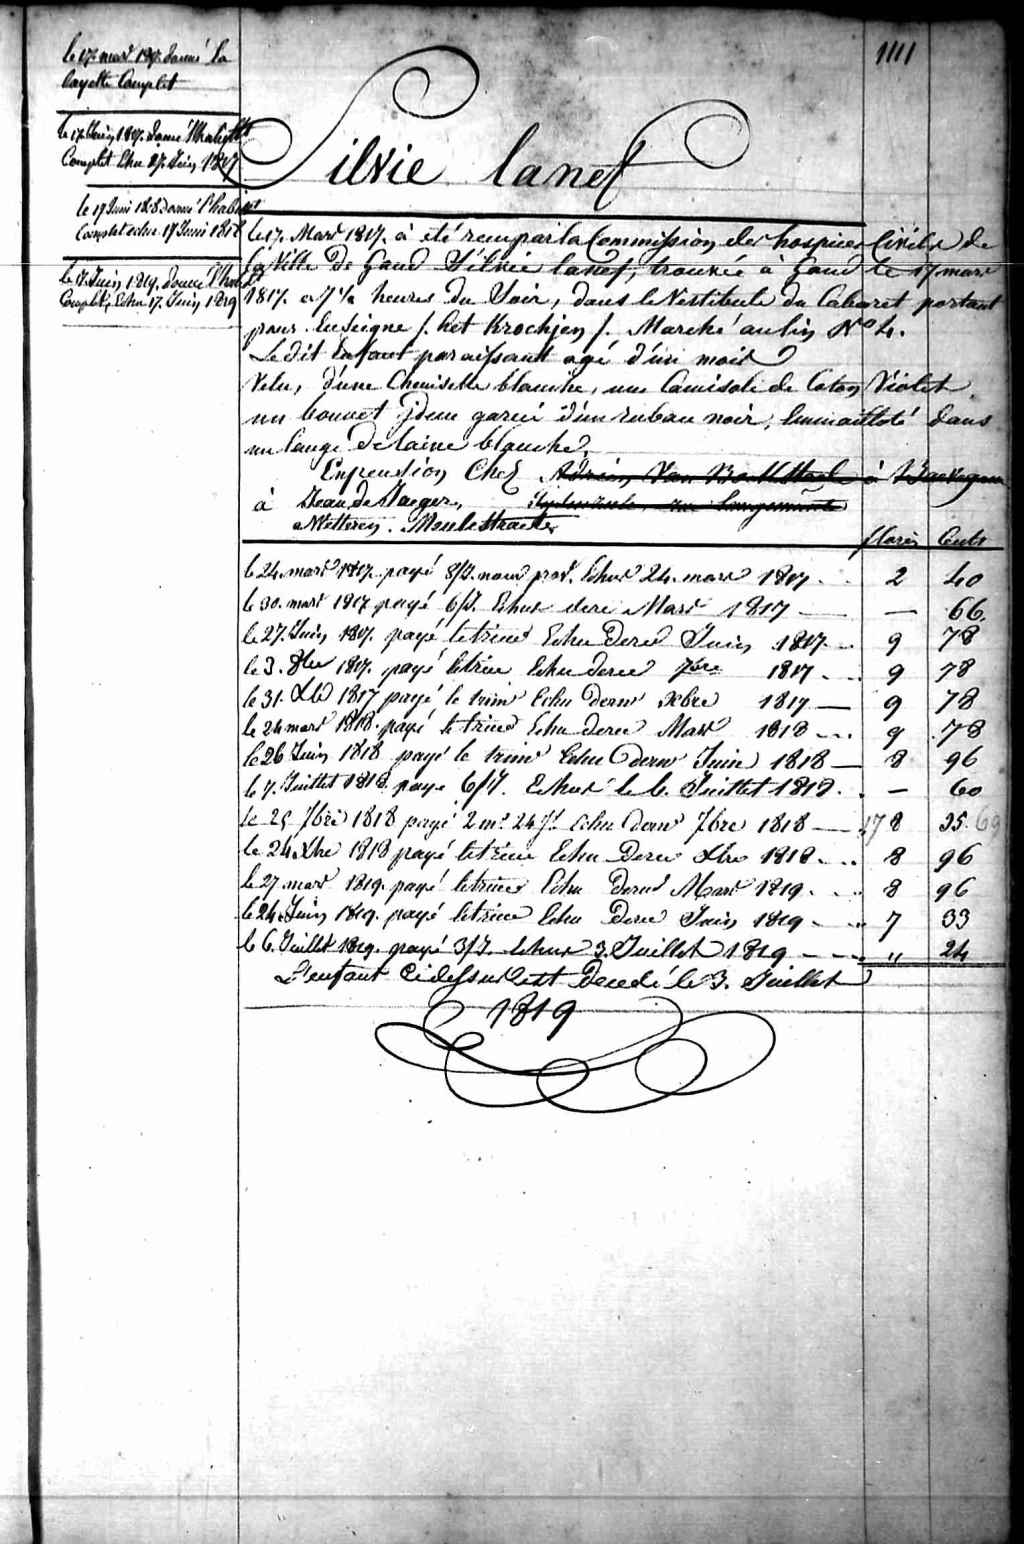 1111
le 17. mars 1817. donné la
layette Complet
le 17. Juin 1817. donné l'habillt
Complet Echu 27. Juin 1817
le 17 Juni 1818 donné l'habillt
Complet echu 17 Juni 1818
le 17. Juin, 1819. donné l'habillt
Complet, Echu. 17. Juin, 1819
Silvie lanef
le 17. Mars 1817. a été recu par la Commission des hospices Civils de
la Ville de Gand Silvie lanef, trouvée à Gand le 17 mars
1817. a 7 ½ heures du Soir, dans le Vestibule du Cabaret portant
pour Enseigne /. het Krochjen /. Marché au lin No 4.
Ledit Enfant paraissant agé d'un mois
Vetu, d'une Chemisette blanche, une Camisole de Coton Violet
un bonnet idem garni d'un ruban noir, Emmailloté dans
un lange de laine blanche.
En pension Chez Adrien Van à
à Jean de Jaeger,
a Wetteren. Meulestraete
florin Cents
le 24. mars 1817. payé 8/J. nour prov. Echus 24. mars 1817. 2 40
le 30. mars 1817 payé 6/J. Echus dere Mars 1817 — — 66.
le 27. Juin 1817. payé le trime Echu dere Juin 1817. 9 78
le 3. 8bre 1817. payé le trime Echu dere 7bre 1817 9 78
le 31. Xbre 1817 payé le trime Echu dernr Xbre 1817 — 9 78
le 24 mars 1818. payé le trime Echu dere Mars 1818 9 78
le 26 Juin 1818 payé le trimr Echu dernr Juin 1818 — 8 96
le 7. Juillet 1818. payé 6/J. Echus le 6. Juillet 1818. — 60
le 25 7bre 1818 payé 2 ms 24 Js Echu dernr 7bre 1818 — 8 35
le 24. Xbre 1818 payé le trime Echu Dere Xbre 1818. 8 96
le 27. mars 1819. payé le trime Echu Derne Mars 1819. 8 96
le 24. Juin 1819. payé le trime Echu Dere Juin 1819 — 7 33
le 6. Juillet 1819. payé 3/J. Echus 3. Juillet 1819 — " 24
L'enfant Ci dessus est Decedé le 3. Juillet
1819